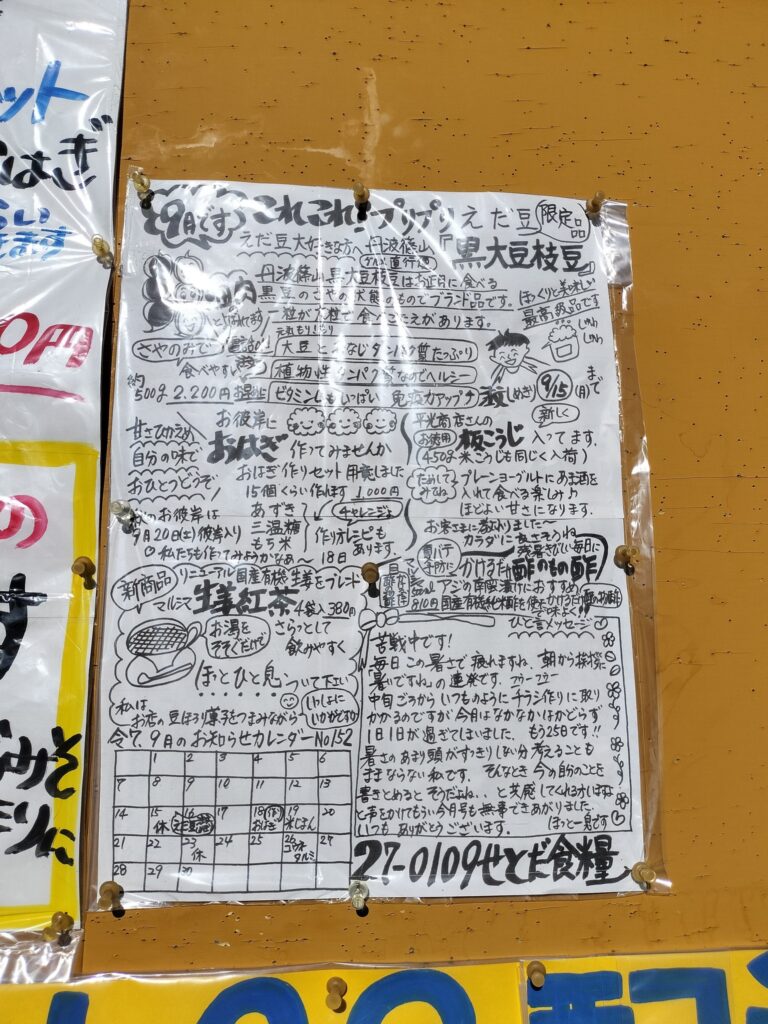 ット
はぎ
らい
きます
0円
の
す
みそ
9月です
これこれ!プリプリえだ豆
限定品
えだ豆大好きな方へ
丹波篠山
直行便
『黒大豆枝豆』
丹波篠山黒大豆枝豆はお正月に食べる
黒豆のさやの状態のものでブランド品です。
ほっくりと美味しい
最高級品です
一粒が大粒で食べごたえがあります。
さやのみで
食べやすい
大豆とおなじタンパク質たっぷり
植物性タンパク質なのでヘルシー
約500g 2.200円
ビタミンCもいっぱい 免疫力アップ
(しめきり) 9/15(月)まで
甘さひかえめ
自分の味で
おひとつどうぞ
お彼岸に
おはぎ
作ってみませんか
おはぎ作りセット用意しました
15個くらい作れます 1,000円
あずき
三温糖
もち米
チャレンジを
作りオレピもあります。
18日
お彼岸は
9月20日(土)彼岸入り
私たちも作ってみようかなあ
平光商店さんの
お徳用
板こうじ
新しく
入ってます。
(450g 米こうじも同じく入荷)
ためしてみてね
プレーンヨーグルトにあま酒を
入れて食べる楽しみ♪
ほどよい甘さになります。
お客さまに教わりました〜
カラダに良さそうね
夏バテ予防に
残暑きびしい毎日に
かけるだけ
酢のもの酢
アジの南蛮漬けにおすすめ
810円
国産有機純米酢を使ったかけるだけ
新商品
リニューアル 国産有機生姜をブレンド
マルシマ
生姜紅茶
4袋入 380円
お湯をそそぐだけで
さらっとして
飲みやすく
ほっとひと息ついて下さい
私は
お店の豆ぽり菓子をつまみながら
いっしょにいかがですか
令7.9月のお知らせカレンダー No152
1 2 3 4 5 6
7 8 9 10 11 12 13
14 15 休 16 17 18 作り おはぎ 19 米じまん 20
21 22 23 休 24 25 26 27
28 29 30
ひと言メッセージ
苦戦中です!
毎日この暑さで疲れますね、朝から挨拶に
暑いですね。の連発です。フウーフウー
中旬ごろからいつものようにチラシ作りに取り
かかるのですが今月はなかなかはかどらず
1日1日が過ぎてしまいました。もう25日です!!
暑さのあまり頭がすっきりしない分考えることも
ままならない私です。そんなとき今の自分のことを
書きとめるとそうだよね、、と共感してくれる方いますよ
と声をかけてもらい今月号も無事できあがりました。
いつもありがとうございます。
ほっと一息です
27-0109せとだ食糧